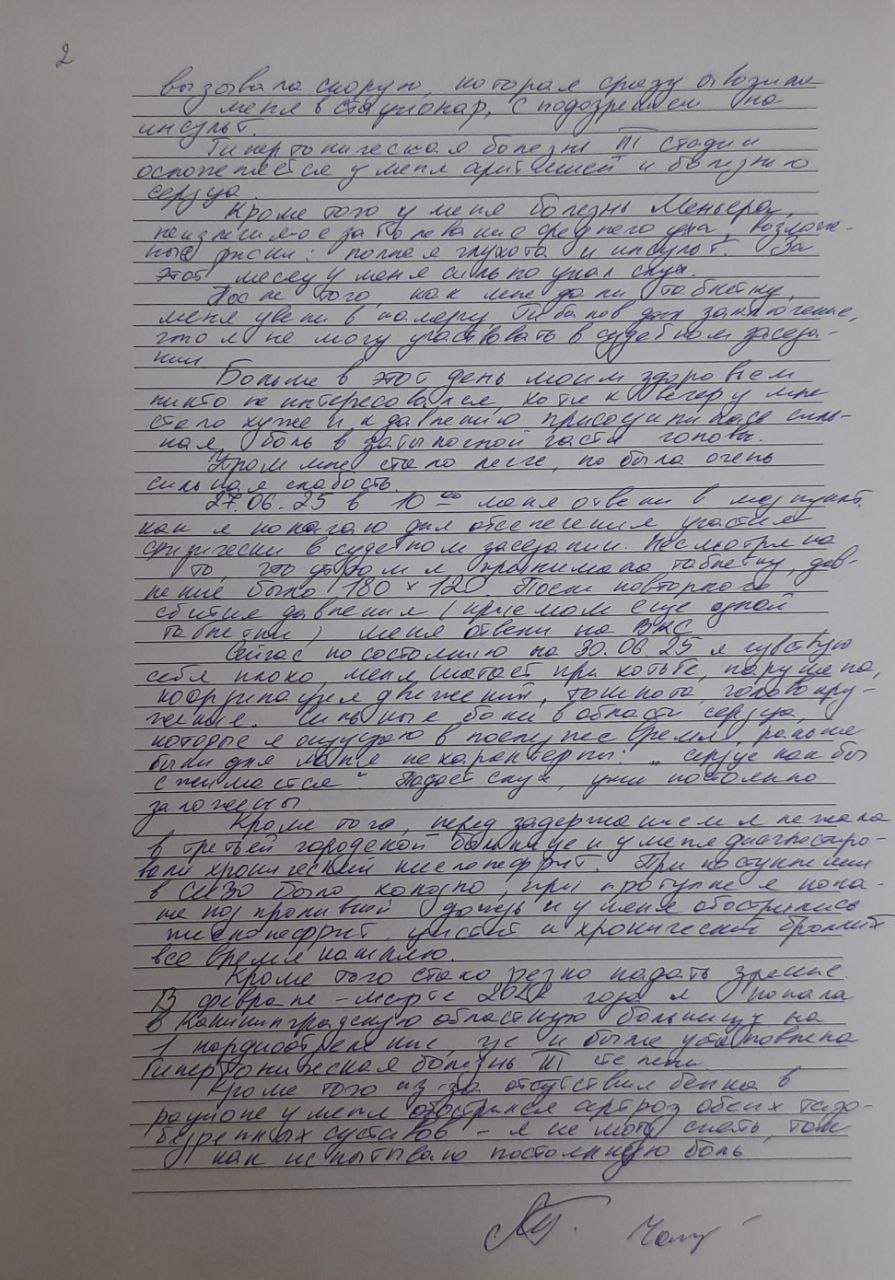 2
вызывала скорую, которая сразу отвозила
меня в стационар, с подозрением на
инсульт.
Гипертоническая болезнь III стадии
осложняется у меня аритмией и болезнью
сердца.
Кроме того у меня болезнь Меньера,
заболевание среднего уха, возмож-
ные риски: полная глухота и инсульт. За
этот месяц у меня сильно упал слух.
После того, как мне дали таблетку,
меня увели в камеру дал заключение,
что я не могу участвовать в судебном заседа-
нии
Больше в этот день моим здоровьем
никто не интересовался, хотя к вечеру мне
стало хуже и к давлению присоединилась силь-
ная боль в затылочной части головы.
Утром мне стало легче, но была очень
сильная слабость.
27.06.25 в 10 00 меня отвели в медпункт,
как я полагаю для обеспечения участия
физически в судебном заседании. Несмотря на
то, что утром я принимала таблетку, дав-
ление было 180 х 120. После повторного
сбития давления (приемом еще одной
таблетки) меня отвели на ВКС
Сейчас по состоянию на 30.06.25 я чувствую
себя плохо, меня шатает при хотьбе, нарушена,
координация движений, тошнота, головокру-
жение. Сильные боли в области сердца,
которые я ощущаю в последнее время, раньше
были для меня не характерны: „сердце как бы
сжимается". Падает слух, уши постоянно
заложены.
Кроме того, перед задержанием я лежала
в третьей городской больнице и у меня диагностиро-
вали хронический пиелонефрит. При поступлении
в СИЗО было холодно, при прогулке я попа-
ла под проливной дождь и у меня обострились
пиелонефрит, цистит и хронический бронхит
все время кашляю.
Кроме того стало резко падать зрение.
В феврале - марте года я попала
в Калининградскую областную больницу на
1 кардиоотделение, где и была установлена
Гипертоническая болезнь III степени
Кроме того из-за отсутствия белка в
рационе у меня обострился артроз обоих тазо-
бедренных суставов - я не могу спать, так
как испытываю постоянную боль